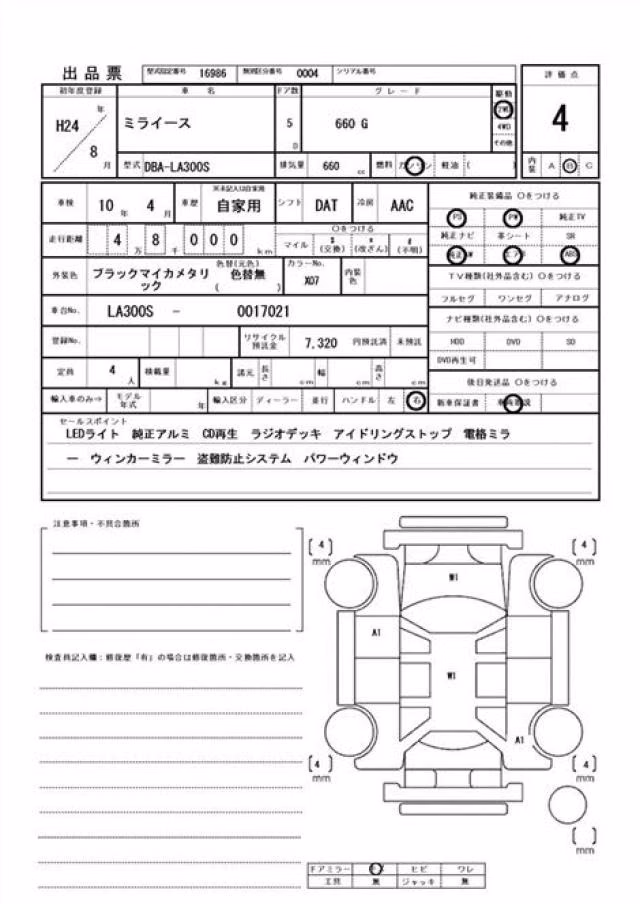 出品票 型式指定番号 16986 類別区分番号 0004 シリアル番号
初年度登録 車名 ドア数 グレード 駆動 評価点
H24 年 8 月 ミライース 5 D 660 G 2WD 4WD その他 4
型式 DBA-LA300S 排気量 660 cc 燃料 ガソリン 軽油 ( ) 内装 A B C
車検 10 年 4 月 車歴 ※未記入は自家用 自家用 シフト DAT 冷房 AAC 純正装備品 ○をつける
PS PW 純正TV
走行距離 4 万 8 千 0 0 0 km ○をつける マイル $ (交換) * (改ざん) # (不明) 純正ナビ 革シート SR
ABS
外装色 ブラックマイカメタリック 色替(元色) ( 色替無 ) カラーNo. X07 内装色 TV種類(社外品含む) ○をつける
フルセグ ワンセグ アナログ
車台No. LA300S - 0017021 ナビ種類(社外品含む) ○をつける
登録No. リサイクル預託金 7,320 円預託済 未預託 HDD DVD SD
DVD再生可
定員 4 人 積載量 kg 諸元 長さ cm 幅 cm 高さ cm 後日発送品 ○をつける
輸入車のみ⇒ モデル年式 年 輸入区分 ディーラー 並行 ハンドル 左 右 新車保証書
セールスポイント
LEDライト 純正アルミ CD再生 ラジオデッキ アイドリングストップ 電格ミラ
ー ウィンカーミラー 盗難防止システム パワーウィンドウ
注意事項・不具合箇所
[ 4 ] mm [ 4 ] mm
W1
A1
検査員記入欄:修復歴「有」の場合は修復箇所・交換箇所を記入
W1
A1
[ 4 ] mm [ 4 ] mm
[ ] mm
ドアミラー キズ ヒビ ワレ
工具 無 ジャッキ 無